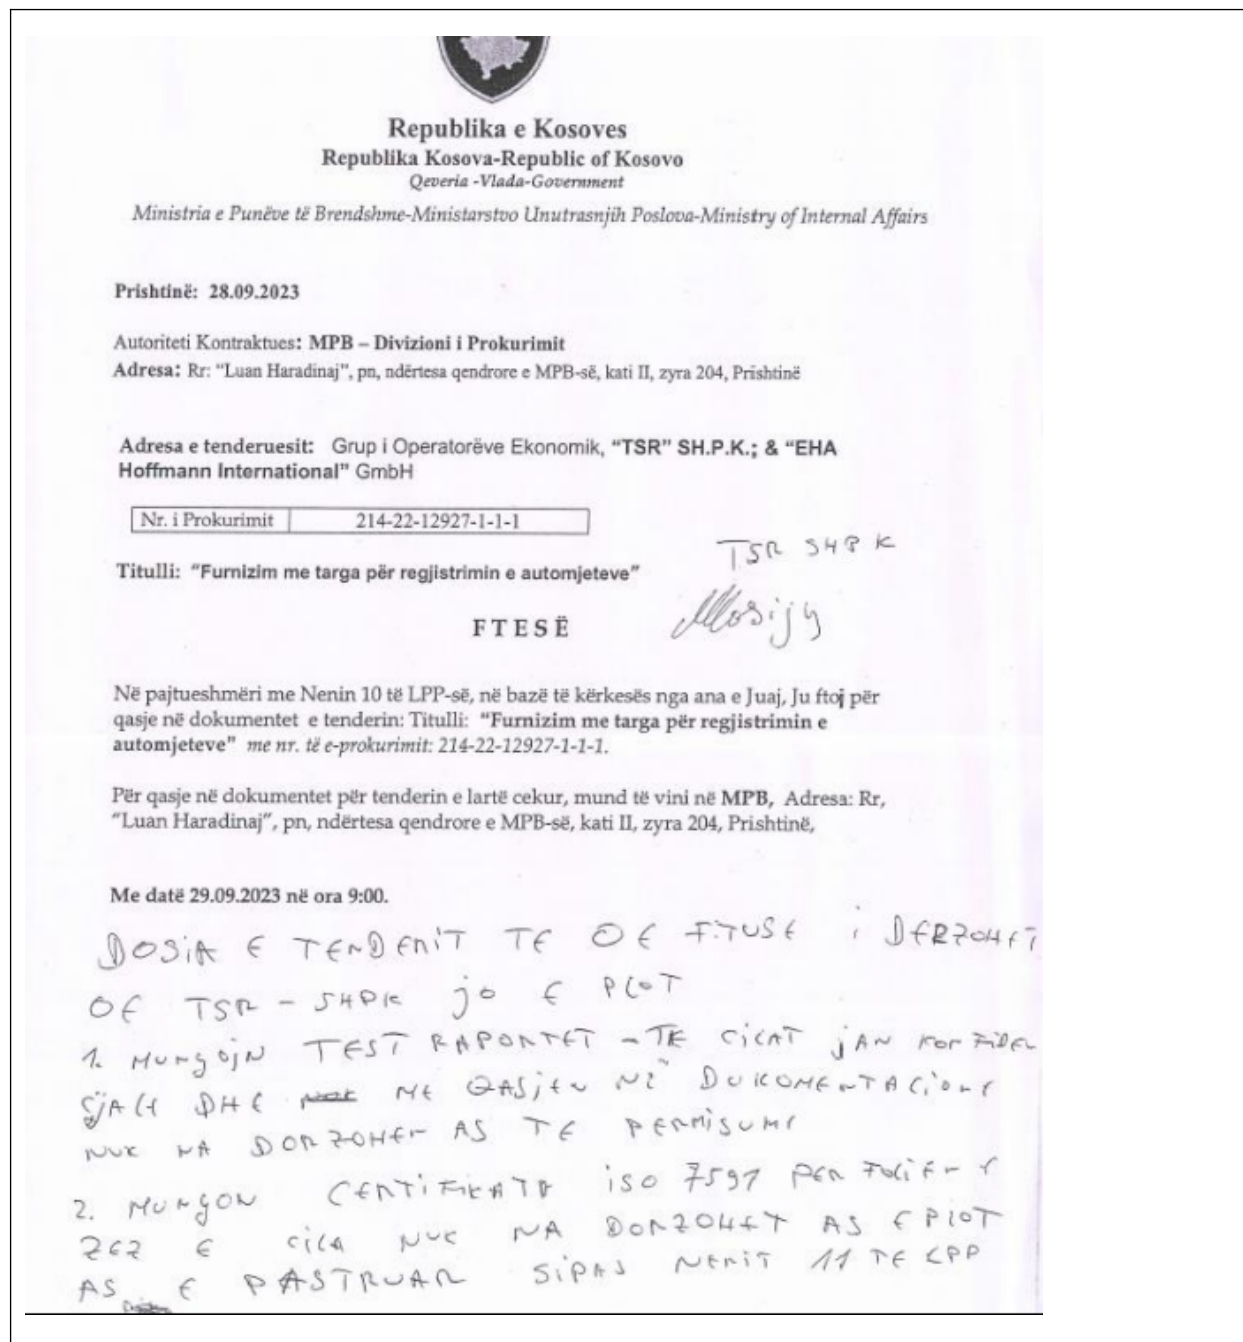 Republika e Kosoves
Republika Kosova-Republic of Kosovo
Qeveria -Vlada-Government
Ministria e Punëve të Brendshme-Ministarstvo Unutrasnjih Poslova-Ministry of Internal Affairs
Prishtinë: 28.09.2023
Autoriteti Kontraktues: MPB – Divizioni i Prokurimit
Adresa: Rr: “Luan Haradinaj”, pn, ndërtesa qendrore e MPB-së, kati II, zyra 204, Prishtinë
Adresa e tenderuesit: Grup i Operatorëve Ekonomik, “TSR” SH.P.K.; & “EHA
Hoffmann International” GmbH
Nr. i Prokurimit 214-22-12927-1-1-1
TSR SHPK
Titulli: “Furnizim me targa për regjistrimin e automjeteve”
FTESË
Në pajtueshmëri me Nenin 10 të LPP-së, në bazë të kërkesës nga ana e Juaj, Ju ftoj për
qasje në dokumentet e tenderin: Titulli: “Furnizim me targa për regjistrimin e
automjeteve” me nr. të e-prokurimit: 214-22-12927-1-1-1.
Për qasje në dokumentet për tenderin e lartë cekur, mund të vini në MPB, Adresa: Rr,
“Luan Haradinaj”, pn, ndërtesa qendrore e MPB-së, kati II, zyra 204, Prishtinë,
Me datë 29.09.2023 në ora 9:00.
DOSJA E TENDERIT TE OE FITUSE i DERZOHET
OE TSR - SHPK jo E PLOT
1. MUNGOJN TEST RAPORTET - TE CILAT JAN KONFIDEN
CJALE DHE ME QASJEN NË DUKOMENTACIONI
NUK NA DORZOHEN AS TE PERMISUMI
2. MUNGON CERTIFIKATA ISO 7591 PER FOLIEN E
ZEZ E CILA NUK NA DORZOHET AS E PLOT
AS E PASTRUAR SIPAS NENIT 11 TE LPP